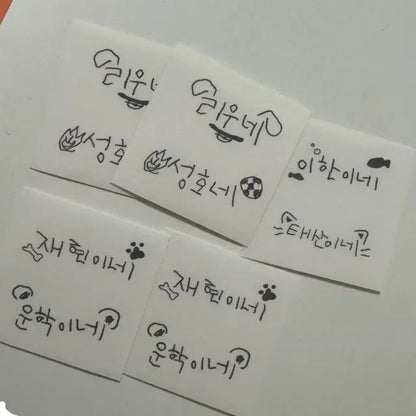 리우네
성호네
리우네
성호네
이한이네
태산이네
재현이네
운학이네
재현이네
운학이네